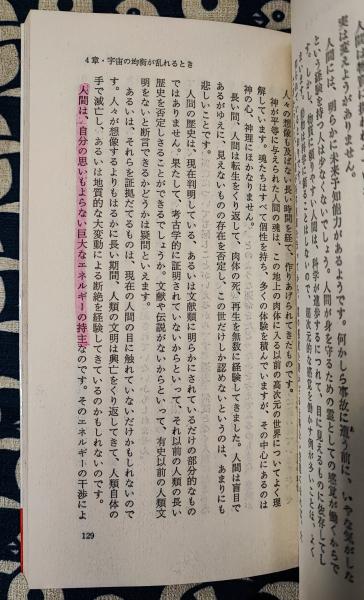 実は変えようがありません。
人間には、明らかに未来予知能力があるようです。何かしら事故に遭う前に、いやな気がした
という経験を持つ人は
4章・宇宙の均衡が乱れるとき
人々の想像も及ばない長い時間を経て、作りあげられてきたものです。
神が平等に与えられた人間の魂は、この地上の肉体に入る以前の高次元の世界についてよく理
解しています。魂たちはすべて個性を持ち、多くの体験を積んでいますが、その中心にあるのは
神の心、神理にほかなりません。
長い間、人間は転生をくり返して、肉体の死、再生を無数に経験してきました。人間は盲目で
あるがゆえに、見えないものの存在を否定し、この世だけしか認めないというのは、あまりにも
悲しいことです。
人間の歴史は、現在判明している、あるいは文献類に明らかにされているだけの部分的なもの
ではありません。果たして、考古学的に証明されていないからといって、それ以前の人類の長い
歴史を否定しさることができるでしょうか。文献や伝説がないからといって、有史以前の人類文
明をないと断言できるかどうかは疑問といえます。
あるいは、それらを証拠だてるものは、現在の人間の目に触れていないだけかもしれないので
す。人々が想像するよりもはるかに長い期間、人類の文明は興亡をくり返してきて、人類自体の
手で滅亡し、あるいは地質的な大変動による断絶を経験してきているのかもしれないのです。
人間は、自分の思いもよらない巨大なエネルギーの持主なのです。そのエネルギーの干渉によ
129